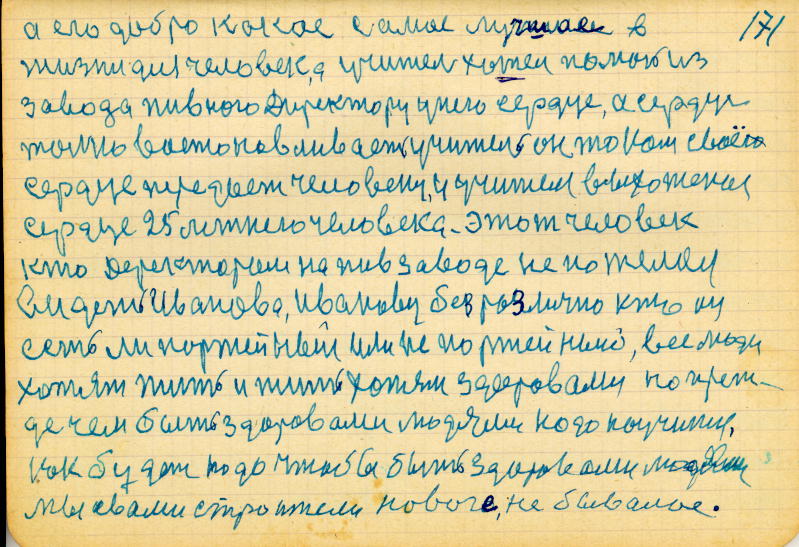 а его добро какое самое лучшаее в 171
жизни для человека, а учител хотел помочь из
завода пивного Директору у него сердце, а сердце
толко востонавливаеть учитель он током своего
сердце передает человеку, и учителя выхоженея
сердце 25 летнего человека. Этот человек
кто деректором на пив заводе не пожелал
видеть Иванова, Иванову безразлично кто он
есть ли портейный или не портейный, все люди
хотят жить и жить хотят здоровами но преж-
де чем быть здоровами людями надо научится,
как будет надо чтобы быть здоровами людями
мы свами строители нового, не бывалое.